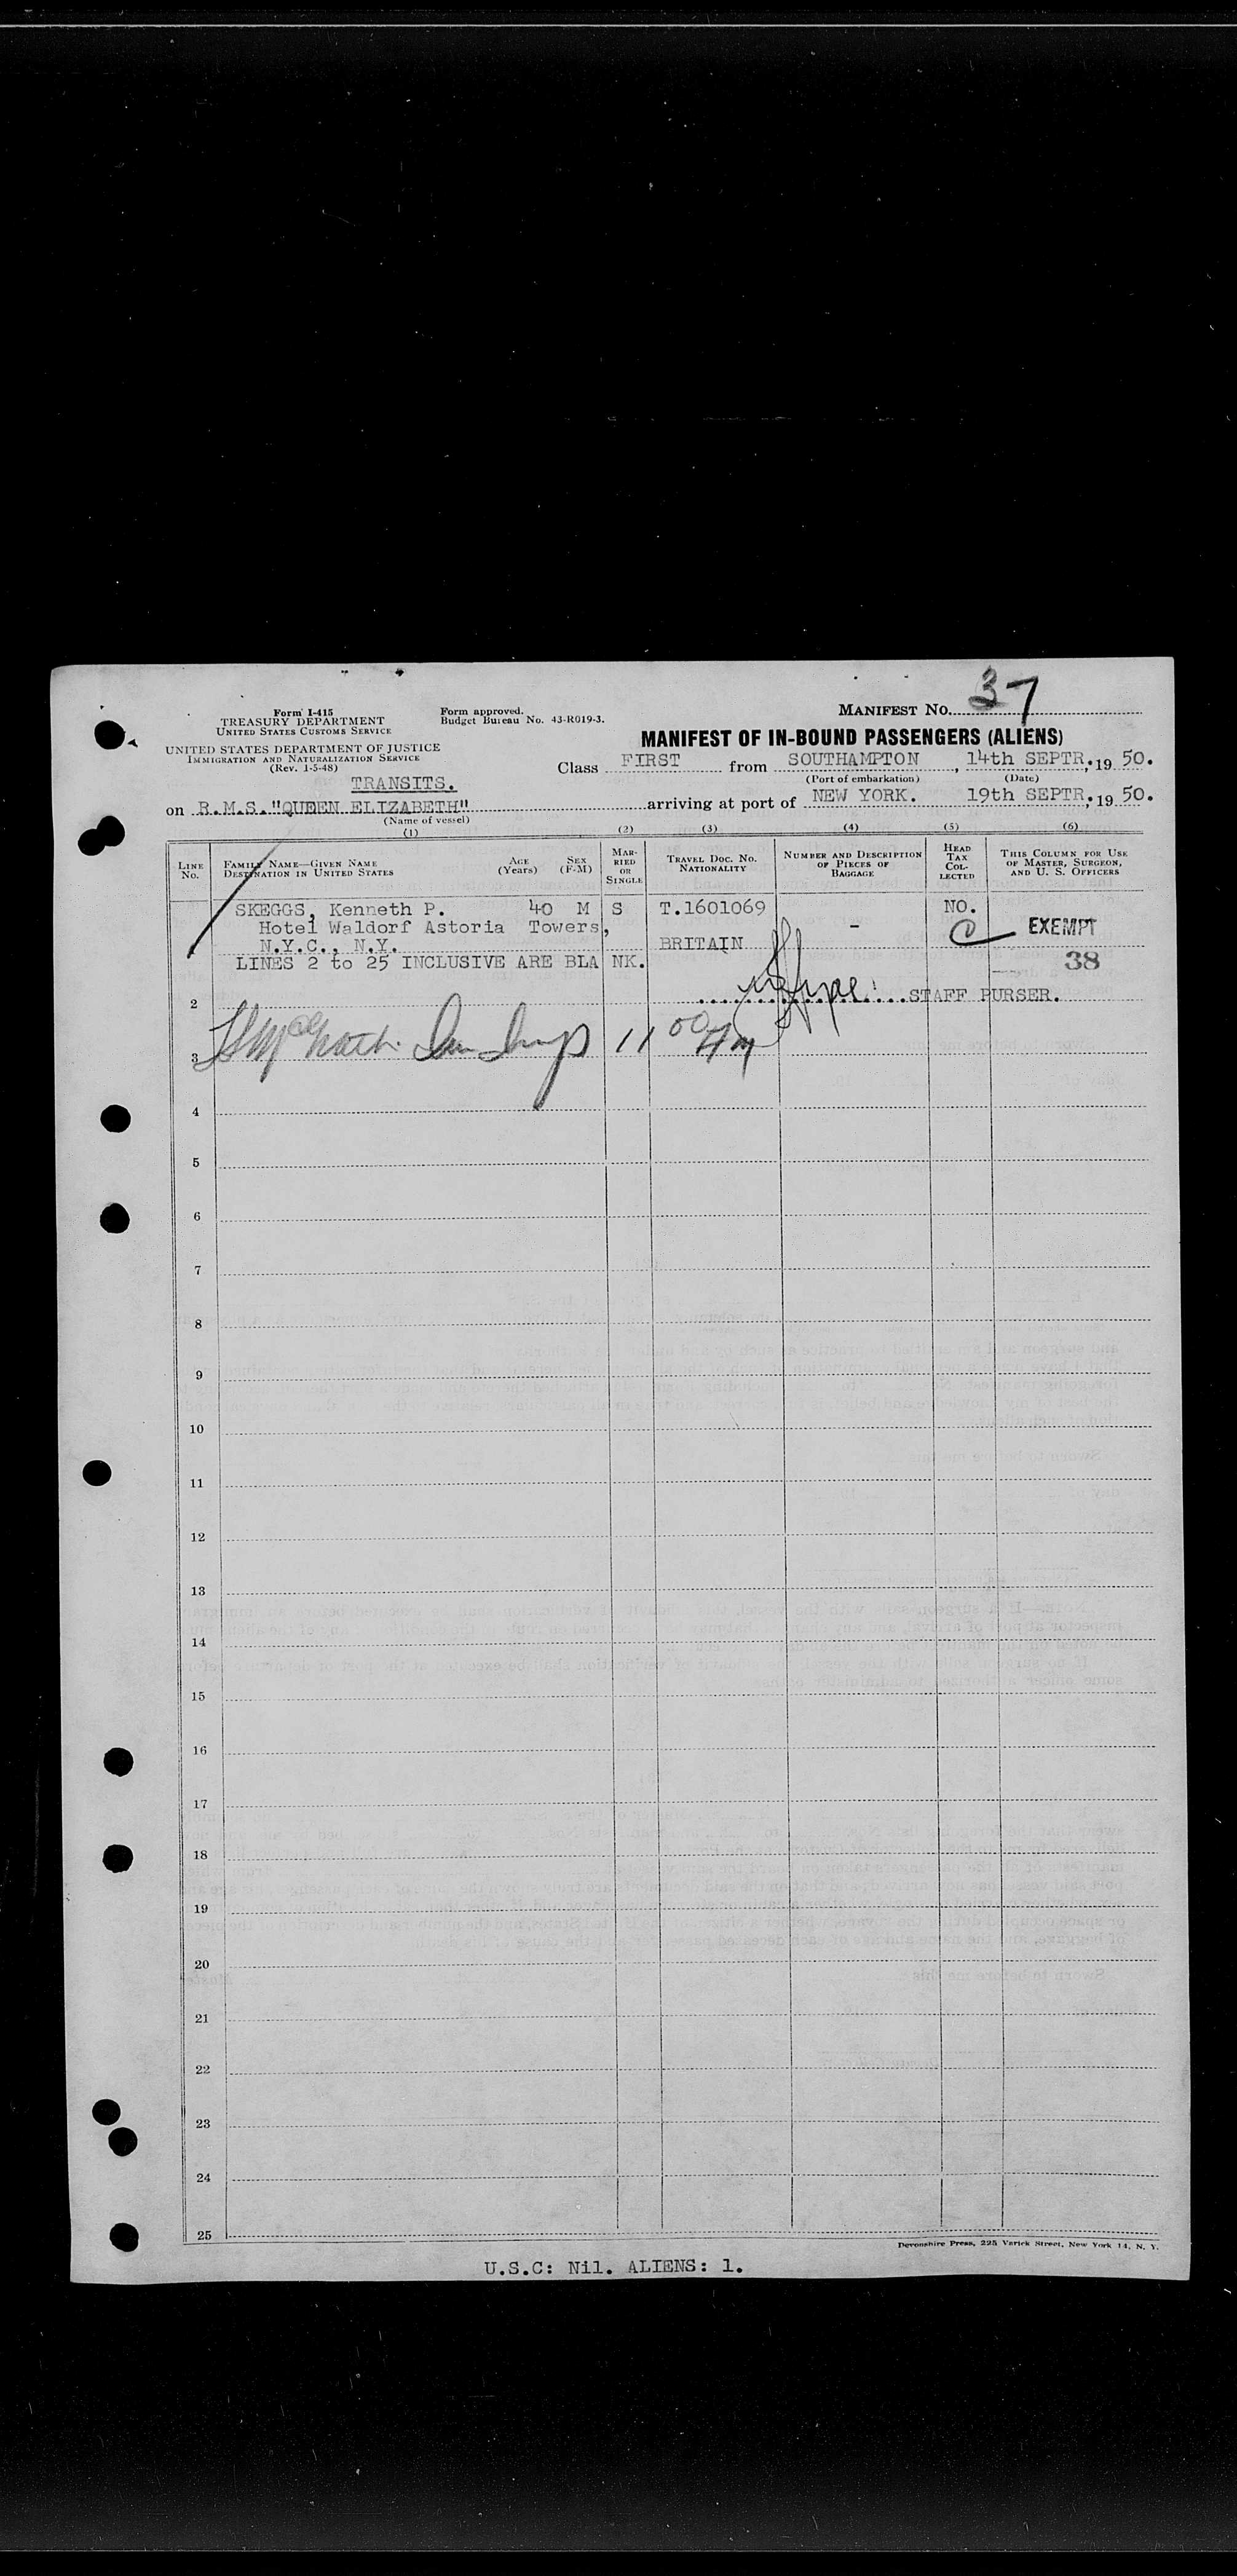 37
Form I-415
TREASURY DEPARTMENT
UNITED STATES CUSTOMS SERVICE
Form approved.
Budget Bureau No. 43-R019-3.
MANIFEST No.
UNITED STATES DEPARTMENT OF JUSTICE
IMMIGRATION AND NATURALIZATION SERVICE
(Rev. 1-5-48)
MANIFEST OF IN-BOUND PASSENGERS (ALIENS)
Class FIRST from SOUTHAMPTON, 14th SEPTR, 19 50.
(Port of embarkation) (Date)
TRANSITS.
on R.M.S. "QUEEN ELIZABETH" arriving at port of NEW YORK. 19th SEPTR, 19 50.
(Name of vessel)
(1) (2) (3) (4) (5) (6)
LINE No.
FAMILY NAME—GIVEN NAME
DESTINATION IN UNITED STATES
AGE (Years)
SEX (F-M)
MARRIED OR SINGLE
TRAVEL DOC. No.
NATIONALITY
NUMBER AND DESCRIPTION OF PIECES OF BAGGAGE
HEAD TAX COLLECTED
THIS COLUMN FOR USE OF MASTER, SURGEON, AND U. S. OFFICERS
SKEGGS, Kenneth P. 40 M S T.1601069 - NO.
Hotel Waldorf Astoria Towers, EXEMPT
1 N.Y.C., N.Y. BRITAIN
LINES 2 to 25 INCLUSIVE ARE BLANK. 38
2 STAFF PURSER.
3 11 00 AM
4
5
6
7
8
9
10
11
12
13
14
15
16
17
18
19
20
21
22
23
24
25
Devonshire Press, 225 Varick Street, New York 14, N. Y.
U.S.C: Nil. ALIENS: 1.